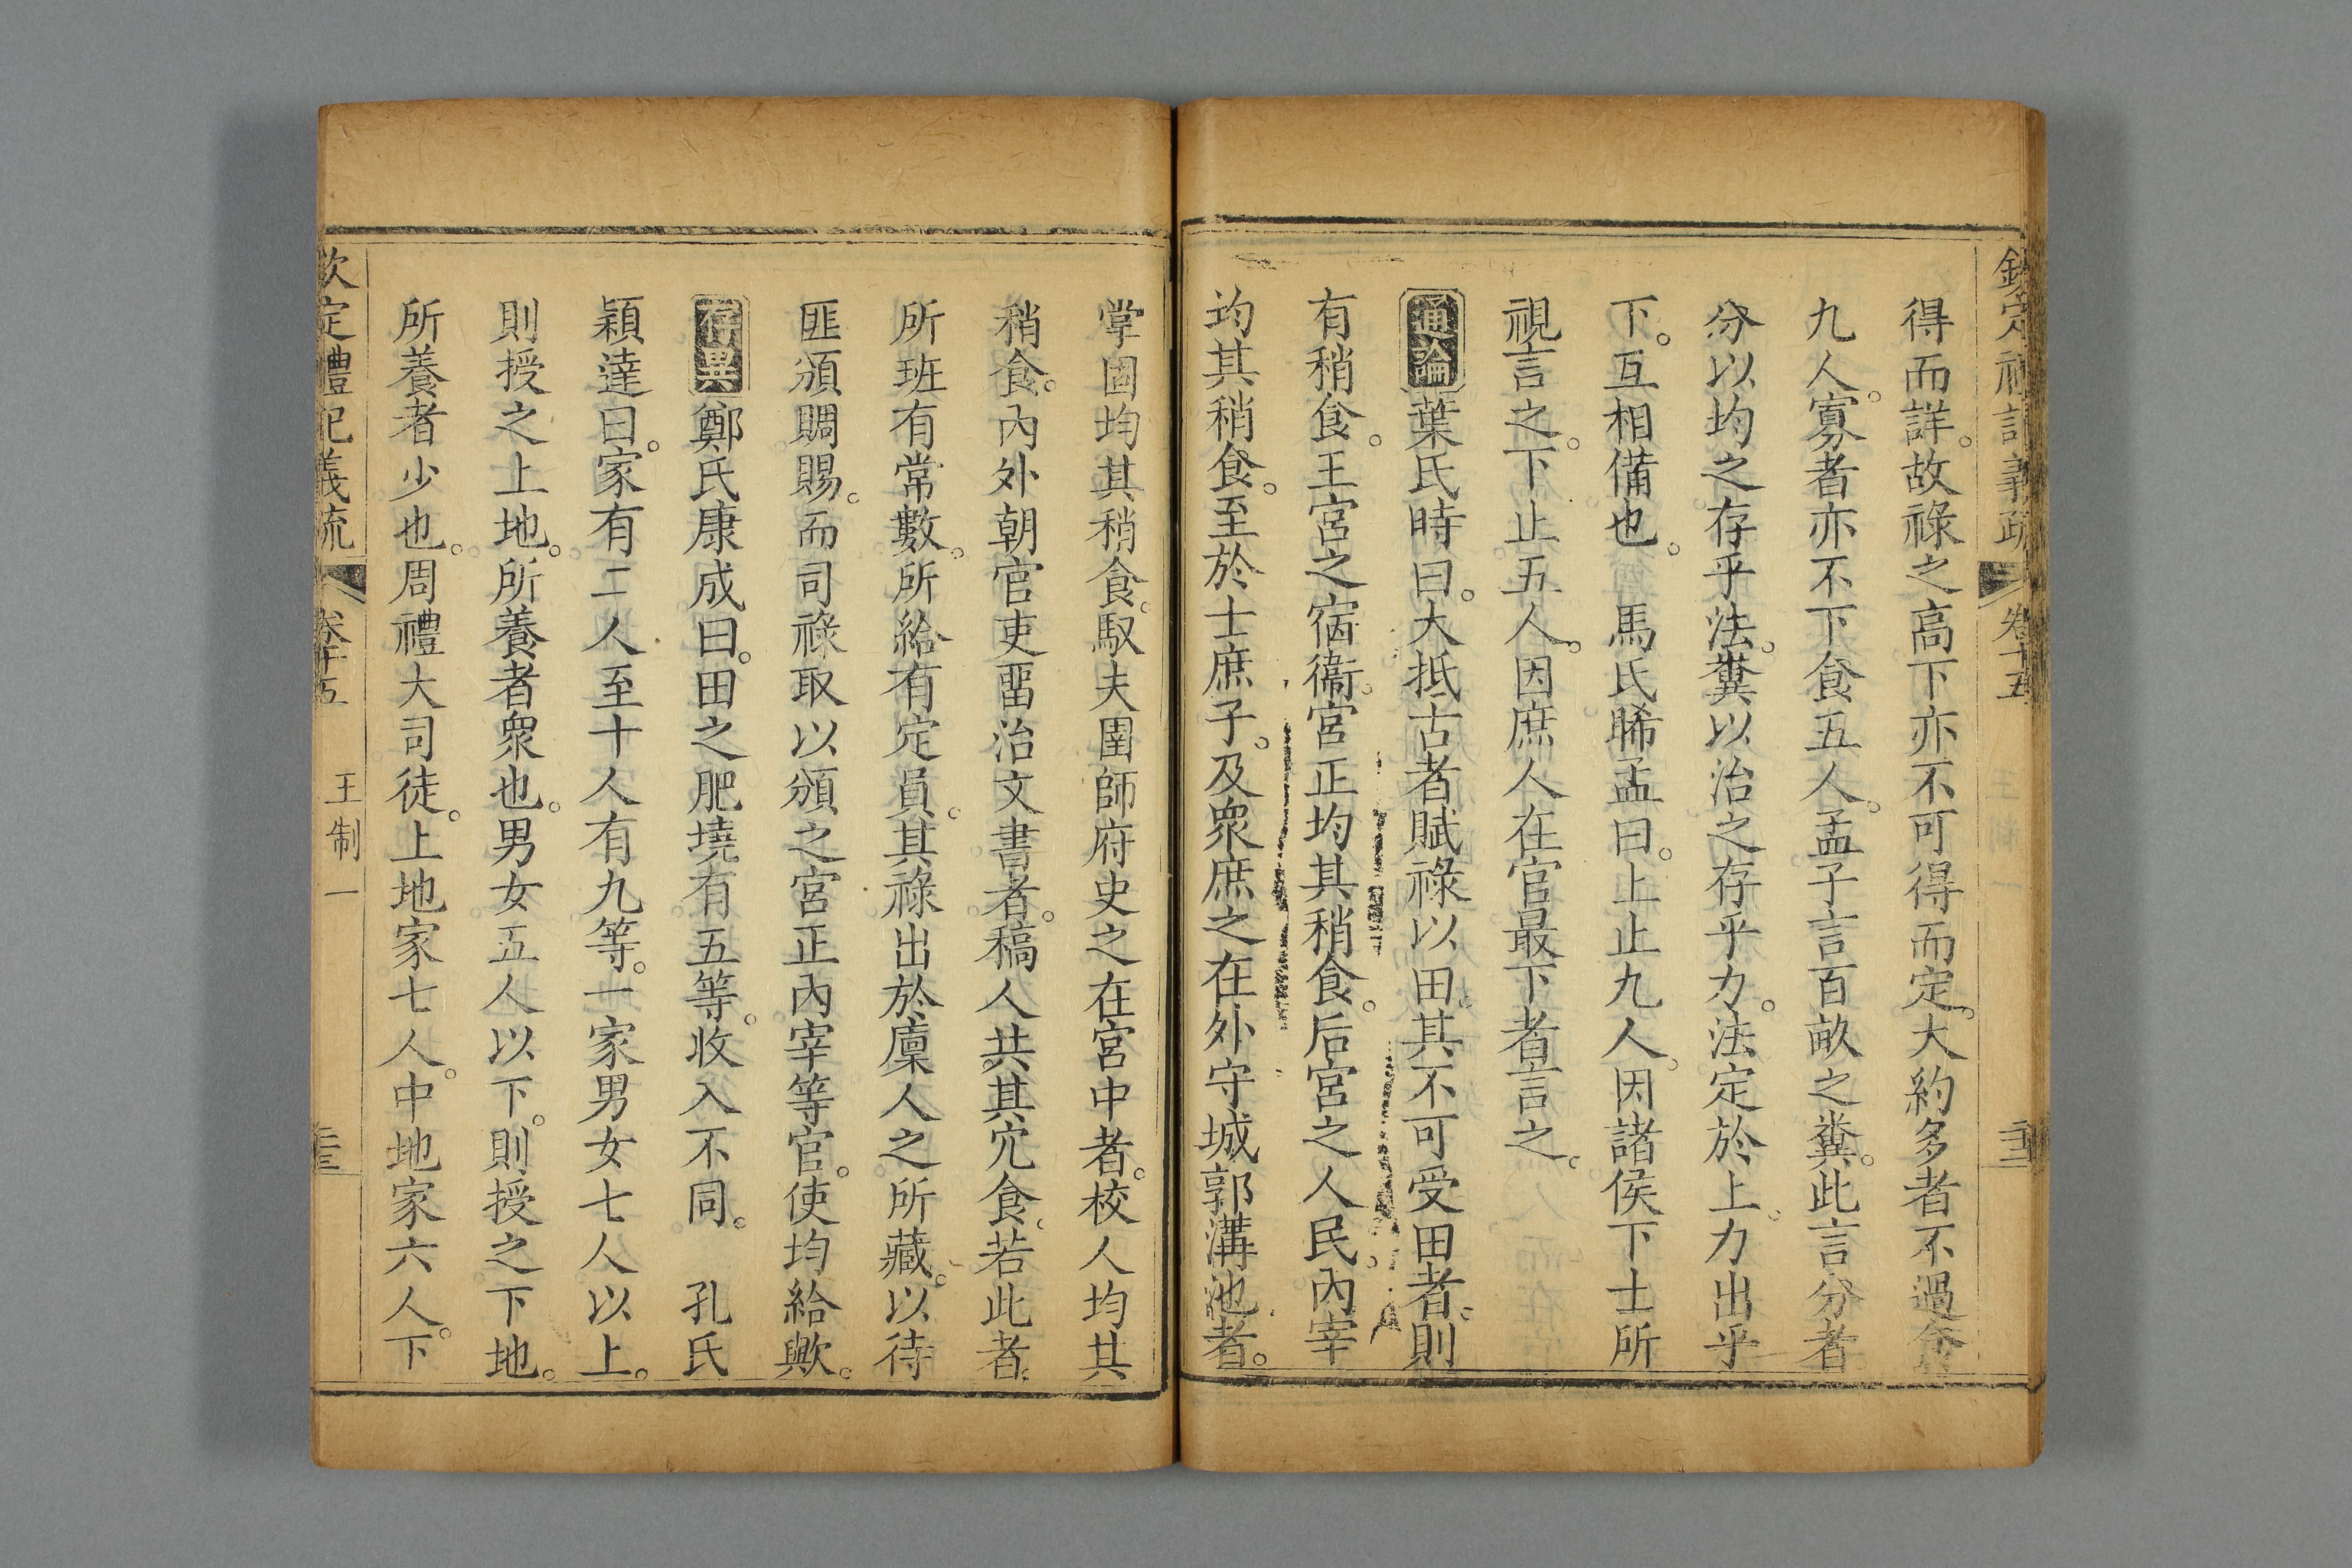 欽定禮記義疏 卷十五
得而詳。故祿之高下亦不可得而定。大約多者不過食
九人。寡者亦不下食五人。孟子言百畝之糞。此言分者
分以均之存乎法。糞以治之存乎力。法定於上。力出乎
下。互相備也。 馬氏晞孟曰。上止九人。因諸侯下士所
視言之。下止五人。因庶人在官最下者言之。
通論葉氏時曰。大抵古者賦祿以田。其不可受田者。則
有稍食。王宮之宿衞。宮正均其稍食。后宮之人民。內宰
均其稍食。至於士庶子。及眾庶之在外守城郭溝池者。
掌固均其稍食。馭夫圉師府史之在宮中者。校人均其
稍食。內外朝官吏畱治文書者。稿人共其宂食。若此者。
所班有常數。所給有定員。其祿出於廩人之所藏。以待
匪頒賙賜。而司祿取以頒之宮正內宰等官。使均給歟。
存異鄭氏康成曰。田之肥墝有五等。收入不同。 孔氏
穎達曰。家有二人至十人有九等。一家男女七人以上。
則授之上地。所養者眾也。男女五人以下。則授之下地。
所養者少也。周禮大司徒。上地家七人。中地家六人。下
欽定禮記義疏 卷十五 王制一